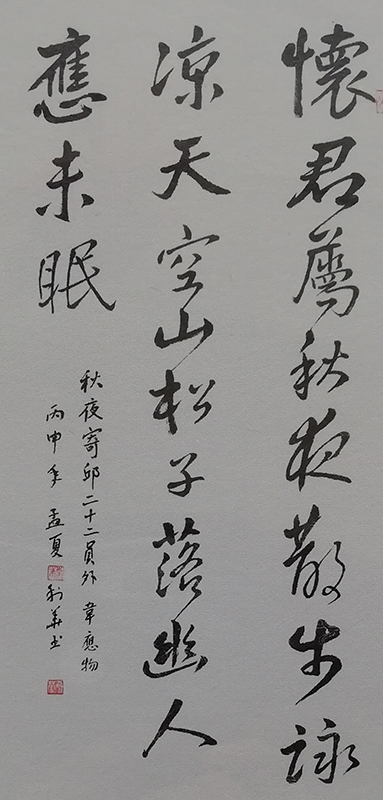 懷君屬秋夜散步詠
凉天空山松子落幽人
應未眠
秋夜寄邱二十二員外 韋應物
丙申年孟夏 利華书